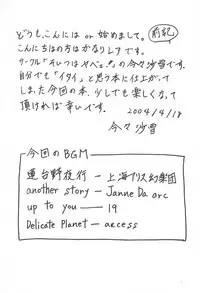 どうも、こんにちは or 始めまして。
前記
こんにちはの方はかなりレアです。
サークル『そいつはヤベェ!!』の今々沙習です。
自分でも「イタイ」と思う本に仕上がって
しまった今回の本、少しでも楽しくなって
頂ければ幸いです。
2004/4/18
今々沙習
今回のBGM
蓮台野夜行 ― 上海アリス幻樂団
another story ― Janne Da arc
up to you ― 19
Delicate Planet ― access